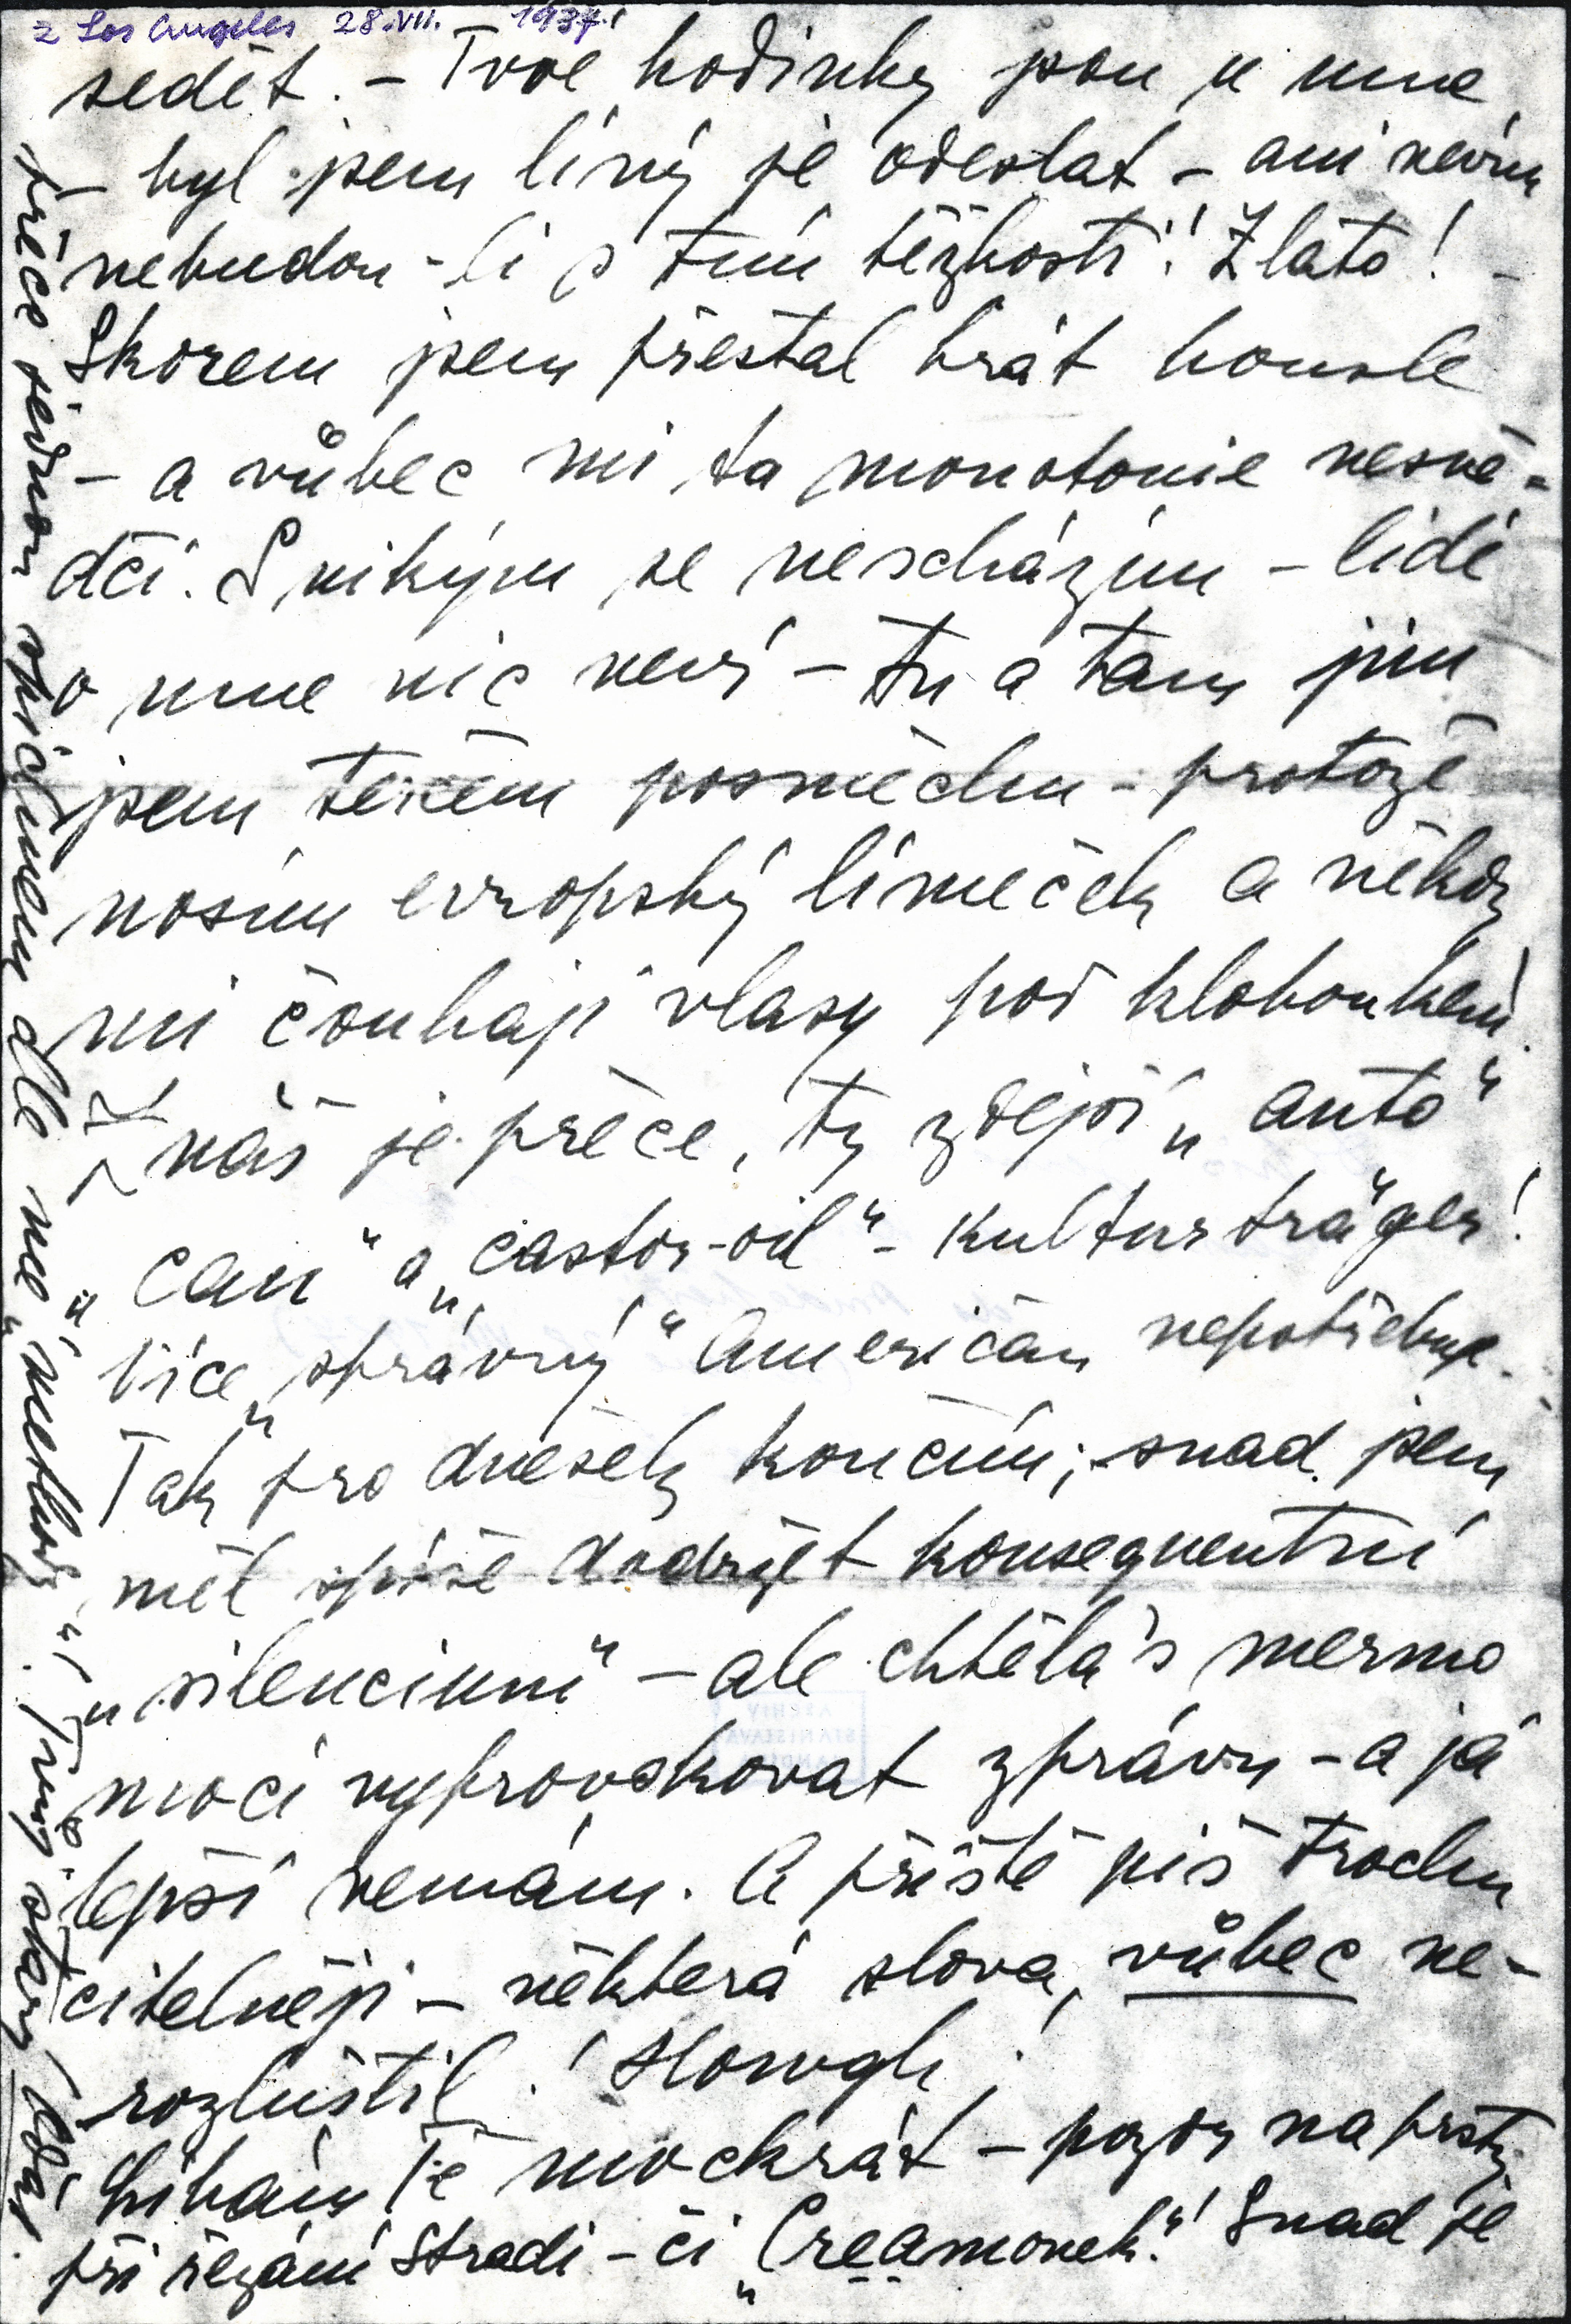 z Los Angeles 28.VII. 1937!
sedět. – Tvoe hodinky jsou u mne
– byl jsem líný je odeslat – ani nevím
nebudou-li s tím těžkosti! Zlato! –
Skorem jsem přestal hrát housle
– a vůbec mi ta monotonie nesvě-
dčí. S nikým se nescházím – lidé
o mne nic neví – tu a tam jim
jsem terčem posměchu – protože
nosím evropský límeček a někdy
mi čouhají vlasy pod kloboukem.
Znáš je přece, ty zdejší „auto“
„can“ a „castor-oil“ – Kulturträger!
Více „správný“ Američan nepotřebuje.
Tak pro dnešek končím; snad jsem
měl spíše dodržet konsequentní
„silencium“ – ale chtěla's mermo
mocí vyprovokovat zprávu – a já
lepší nemám. A příště piš trochu
čitelněji – některá slova, vůbec ne-
rozluštil! Howgh!
Líbám Tě mockrát – pozor na prsty
při řezání Stradi – či „Creamonek“! Snad se
přece sejdou opičinem dle mé „methody“! Tvůj starý Edáš.